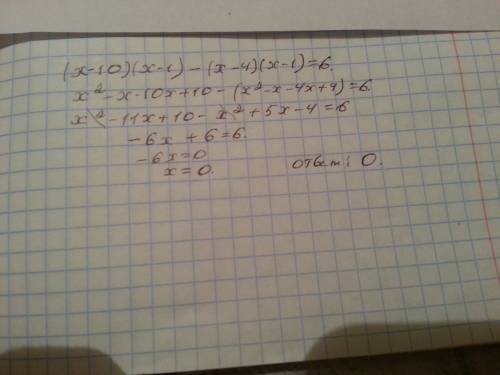 (x-10)(x-1) - (x-4)(x-1)=6.
x²-x-10x+10 - (x²-x-4x+4)=6.
x²-11x+10-x²+5x-4=6
-6x+6=6.
-6x=0
x=0. ответ: 0.